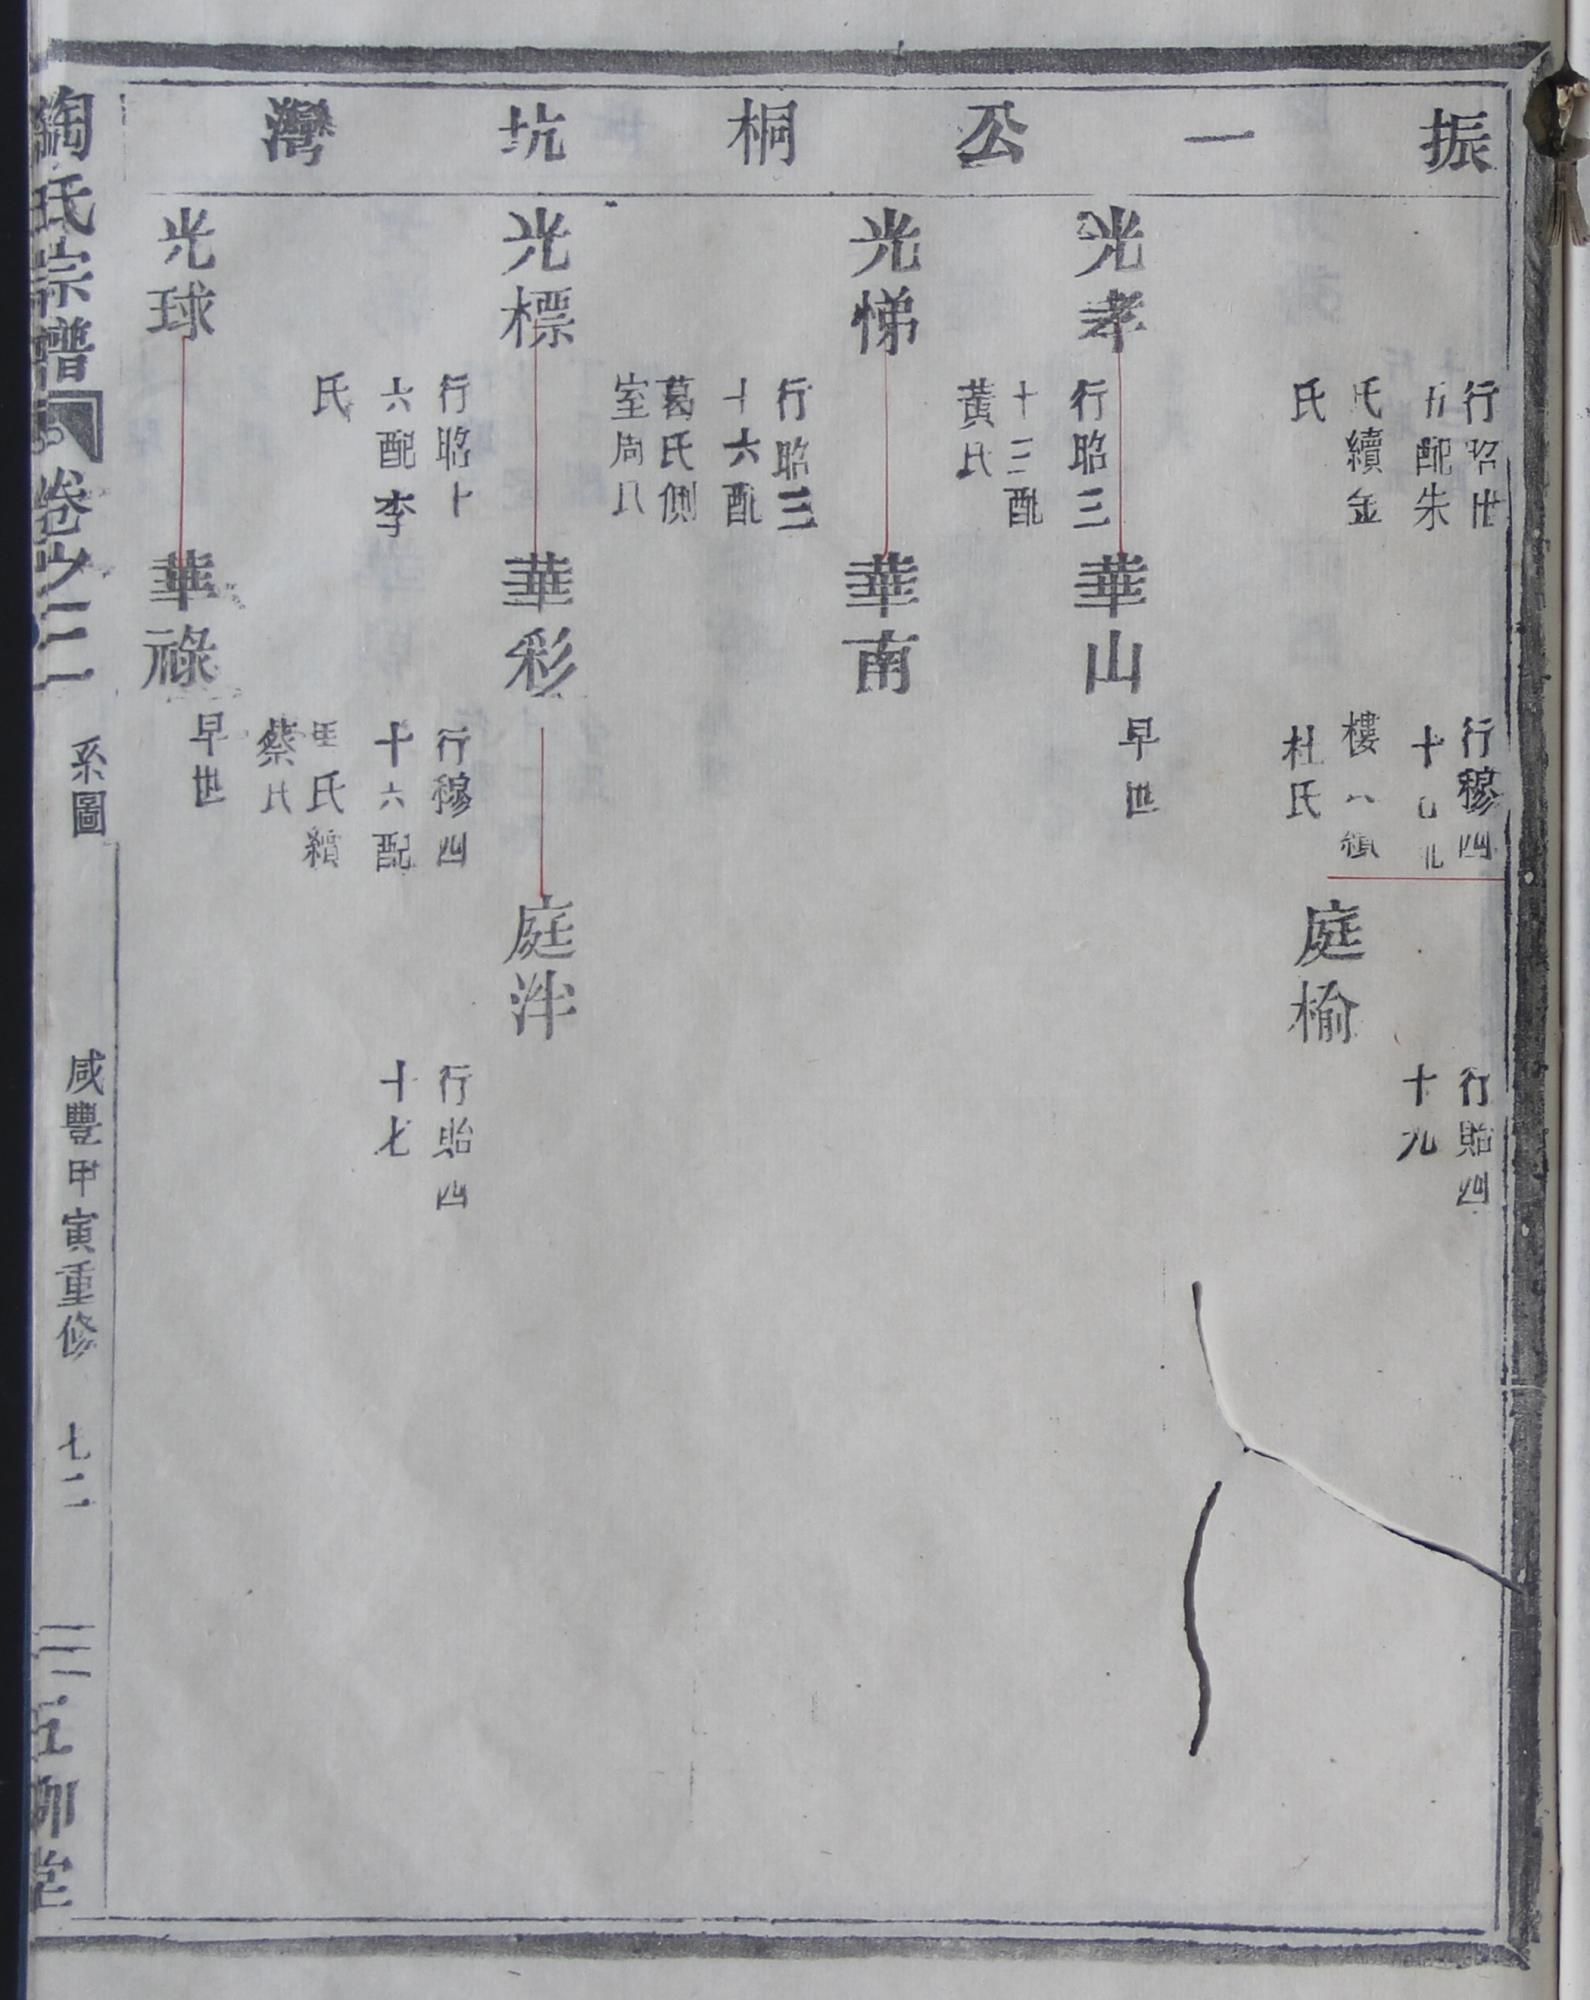 振一公桐坑灣
行昭世
五配朱
氏續金
氏
行穆四
十
樓 續
杜氏
庭榆
行貽四
十九
光孝
行昭三
十三配
黃氏
華山
早世
光悌
行昭三
十六配
葛氏側
室周氏
華南
光標
行昭十
六配李
氏
華彩
行穆四
十六配
氏續
蔡氏
庭泮
行貽四
十七
光球
華祿
早世
陶氏宗譜
卷之二
系圖
咸豐甲寅重修
七二
五柳堂